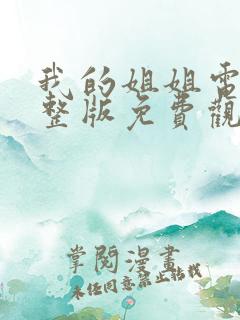 我的姐姐電
整版免費觀
掌閱漫畫
未经同意禁止转载